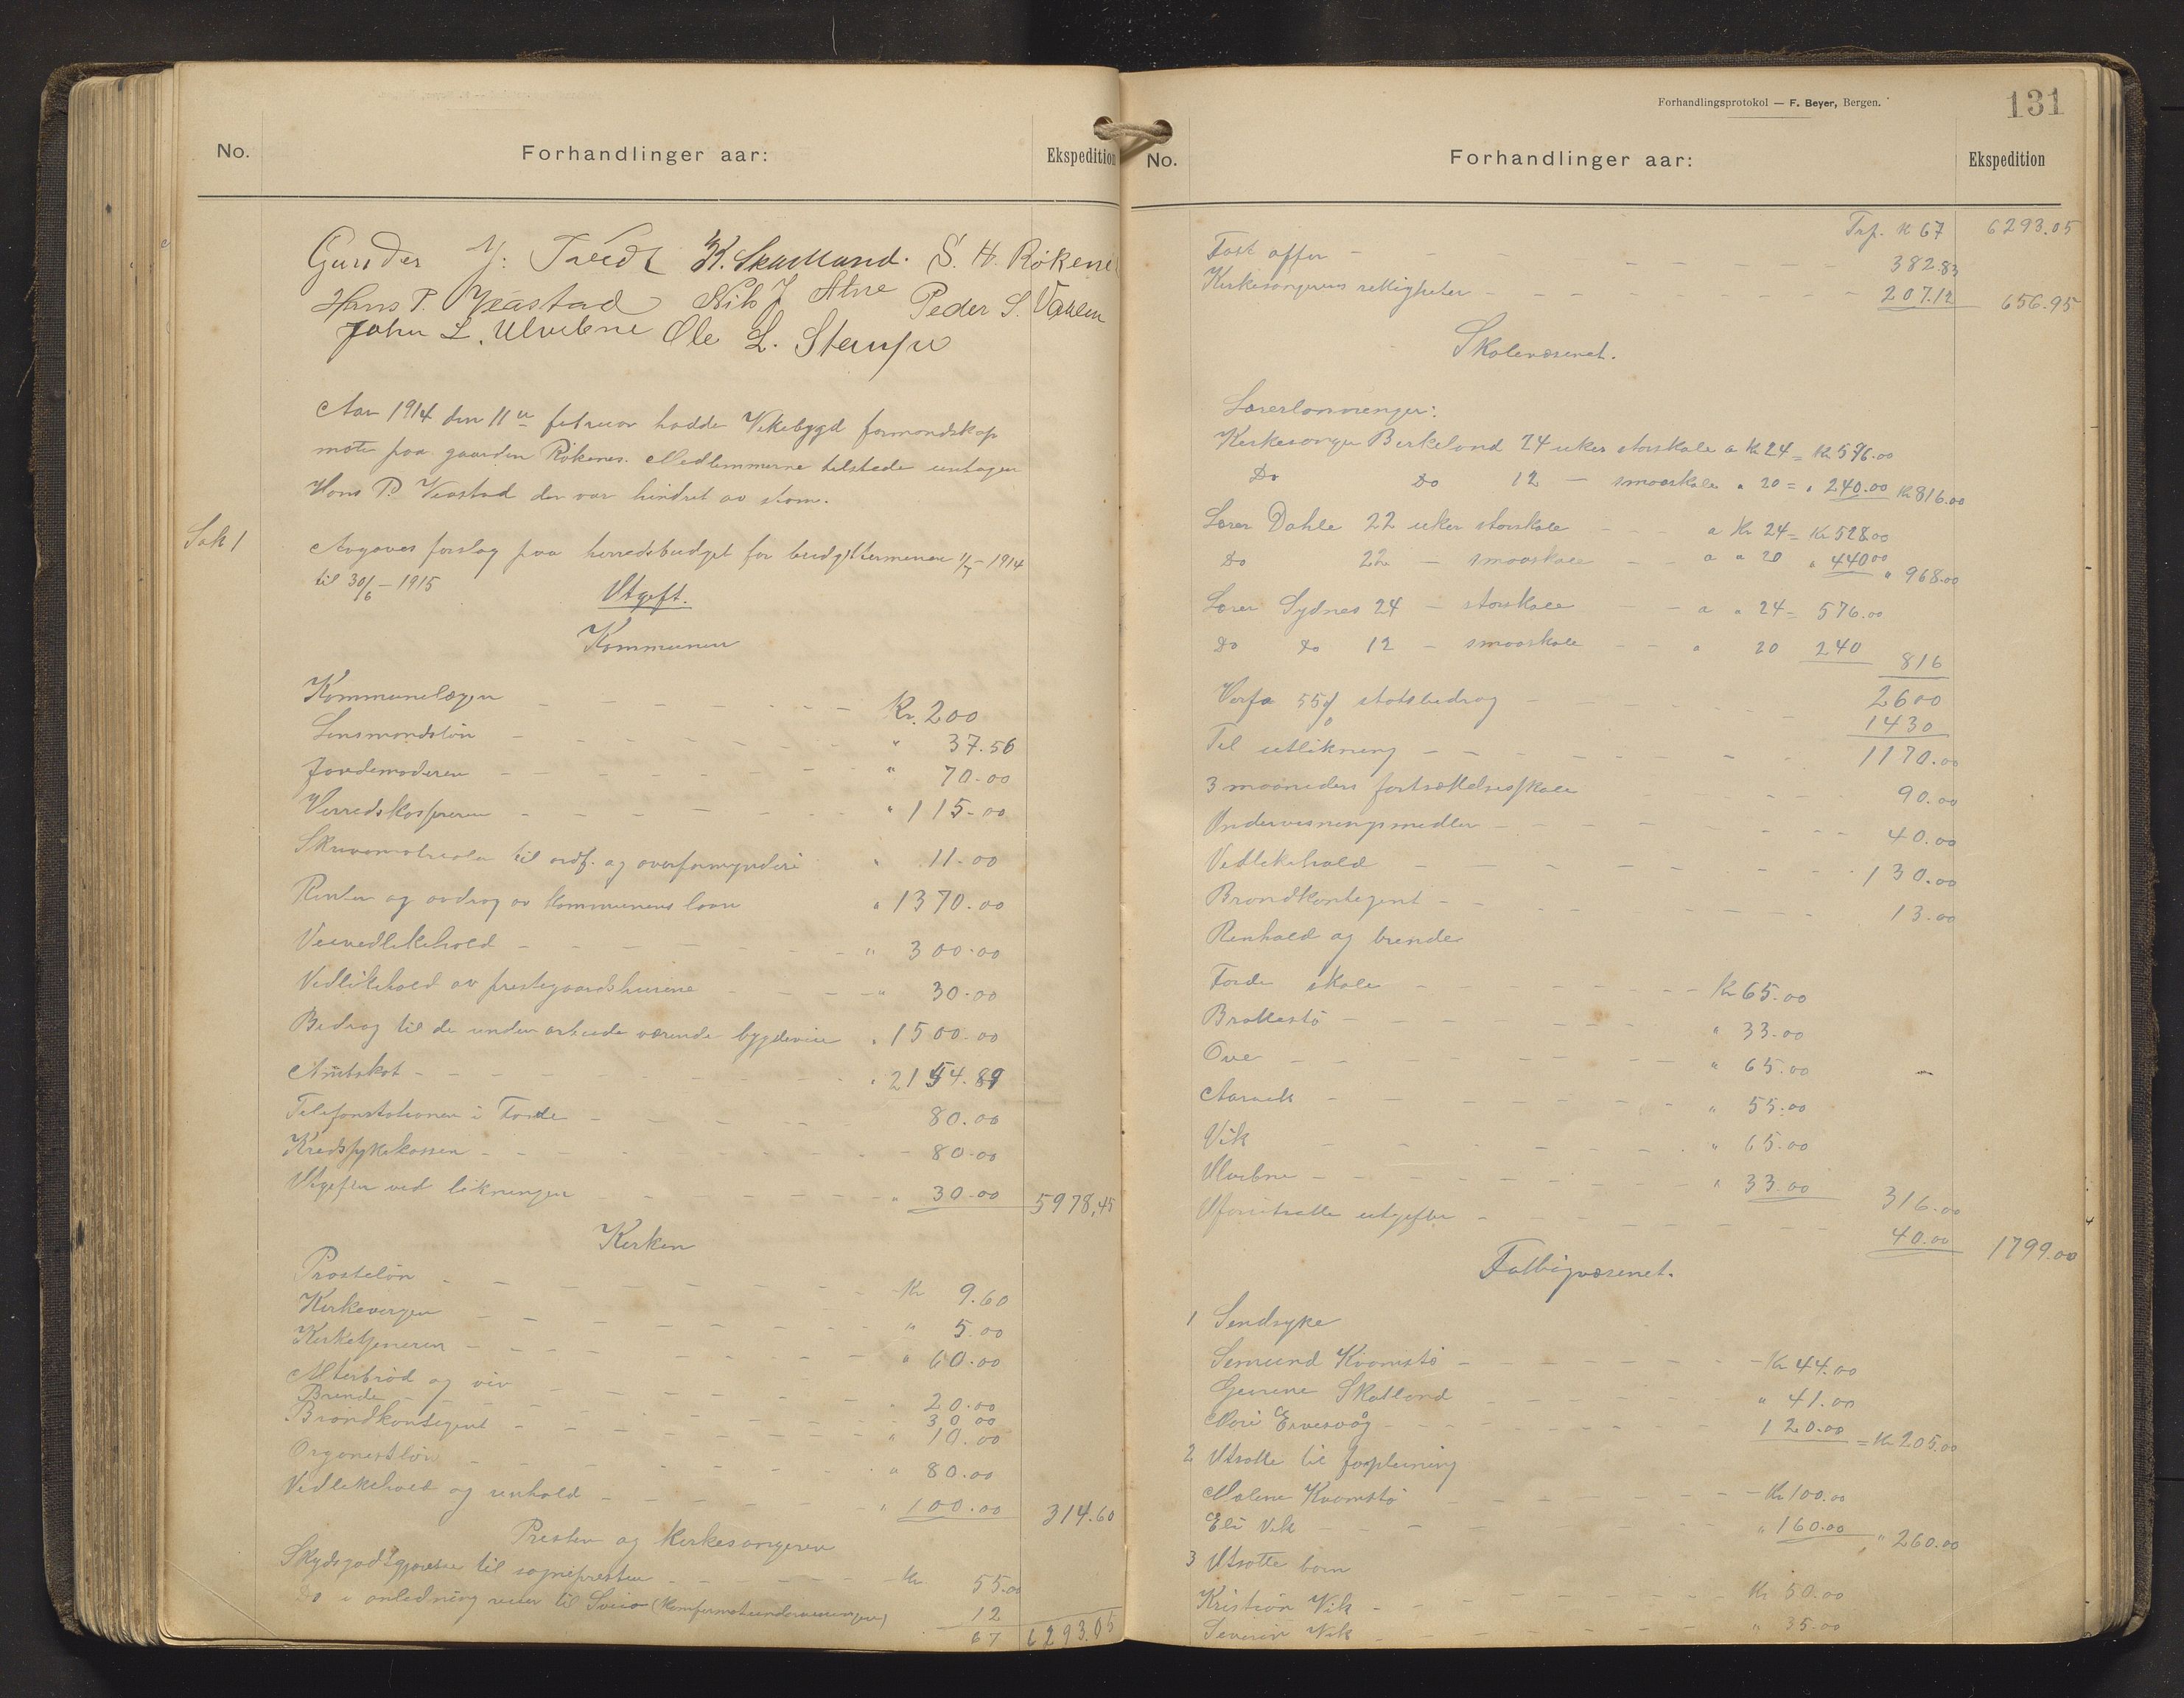 No.
Forhandlinger aar:
Ekspedition
Gunder J. Tveidt K. Skartland. S. H. Rökenes
Hans P. Veastad Nils J Alne Peder S. Vaulen
John L. Ulvebne Ole L. Stenspe
Aar 1914 den 11te februar hadde Vikebygd formandskap
møte paa gaarden Rökenes. Medlemmerne tilstede untagen
Hans P. Veastad der var hindret av storm.
Sak 1
Avgaves forslag paa herredsbudget for budgettterminen 1/7 - 1914
til 30/6 - 1915
Utgift.
Kommunen
Kommunelægen Kr. 200
Lensmandsløn " 37.56
Jordemoderen " 70.00
Herredskasseren " 115-00
Skrivematrialer til ordf. og overformynderi " 11-00
Renter og avdrag av kommunens laan " 1370.00
Veivedlikehold " 300.00
Vedlikehold av prestegaardshusene " 30.00
Bedrag til de under arbeide værende bygdeveie " 1500.00
Amtskat " 2154.89
Telefonstationen i Førde 80.00
Kredssykekassen 80.00
Utgifter ved likningen " 30.00 5978.45
Kirken
Prosteløn Kr 9.60
Kirkevergen " 5.00
Kirketjeneren " 60.00
Alterbrød og vin " 20.00
Brende 30 00
Brandkontigent " 10.00
Organistløn " 80.00
Vedlikehold og renhold " 100.00 314.60
Presten og kirkesangeren
Skydsgodtgjørelse til sognepresten Kr 55.00
Do i anledning reiser til Sveio (konfirmationsundervisningen) 12
67 6293.05
Forhandlingsprotokol — F. Beyer, Bergen.
131
No.
Forhandlinger aar:
Ekspedition
Trf. K 67 6293.05
Fast offer 382.83
Kirkesangerens rettigheter 207.12 656.95
Skolevæsenet.
Lærerlønninger:
Kirkesanger Birkeland 24 uker storskole a Kr 24 = Kr 576.00
Do Do 12 — smaaskole " 20 = " 240.00 Kr 816.00
Lærer Dahle 22 uker storskole a Kr 24 = Kr 528.00
Do 22 — smaaskole a " 20 " 440.00 " 968.00
Lærer Sydnes 24 — storskole a " 24 = 576.00
Do Do 12 — smaaskole " 20 240 816
2600
Herfra 55% statsbedrag 1430
Til utlikning 1170.00
3 maaneders fortsættelsesskole 90.00
Undervisningsmidler 40.00
Vedlikehold 130.00
Brandkontigent 13.00
Renhold og brende
Førde skole Kr 65.00
Brattestø " 33.00
Ove " 65.00
Aarvik " 55.00
Vik " 65.00
Ulvebne " 33.00 316.00
Uforutsatte utgifter 40.00 1799.00
Fattigvæsenet.
1 Sendsyke
Semund Kvamstø Kr 44.00
Geurine Skatland " 41.00
Mari Ervesvåg 120.00 = Kr 205.00
2 Utsatte til forpleining
Malene Kvamstø Kr 100.00
Eli Vik " 160.00 " 260.00
3 Utsatte barn
Kristian Vik Kr 50.00
Severin Vik " 35.00